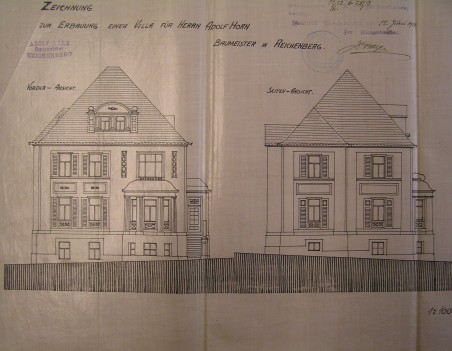 ZEICHNUNG
ZUR ERBAUUNG EINER VILLA FÜR HERRN ADOLF HORN
BAUMEISTER IN REICHENBERG.
ADOLF HORN
Baumeister
REICHENBERG
VORDER-ANSICHT.
SEITEN-ANSICHT.
1:100